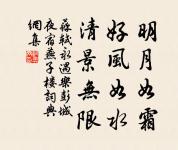 明月如霜
好風如水
清景無限
蘇軾永遇樂彭城
夜宿燕子樓詞典
網集